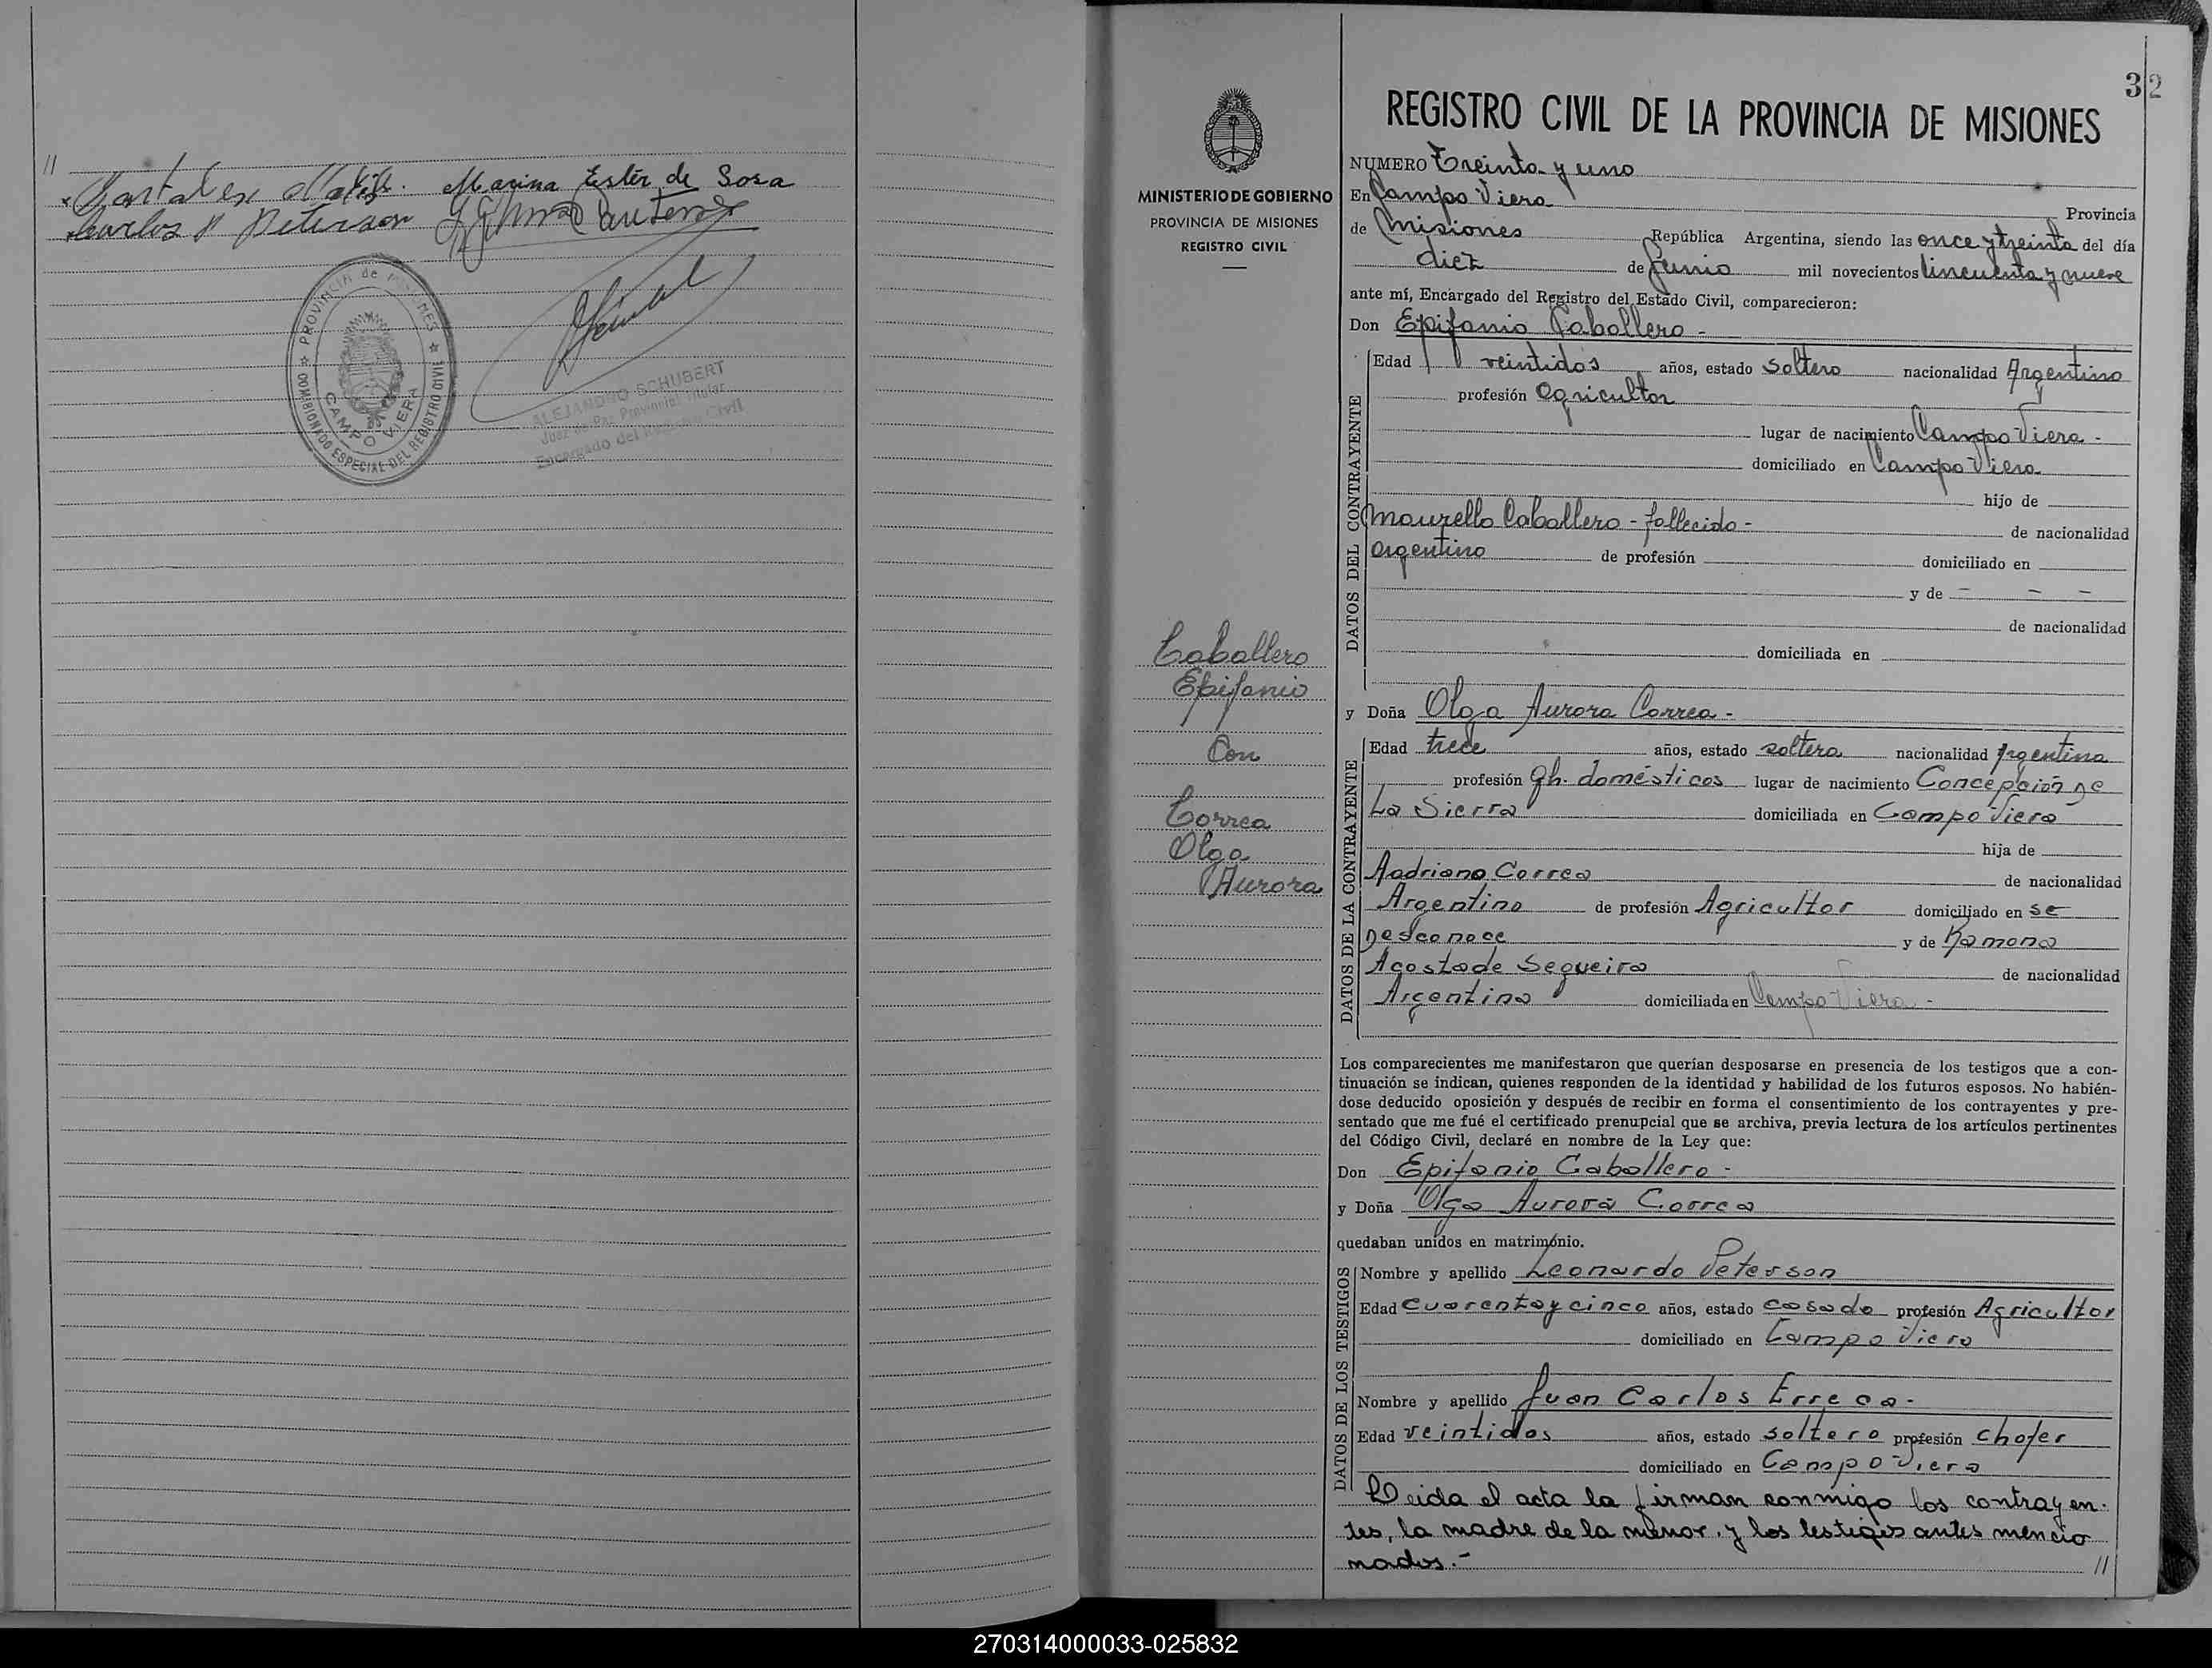 //
Marina Ester de Sosa
Carlos P Peterson
PROVINCIA de MISIONES
CAMPO VIERA
COMISIONADO ESPECIAL DEL REGISTRO CIVIL
ALEJANDRO SCHUBERT
Juez de Paz Provincial Titular
Encargado del Registro Civil
32
REGISTRO CIVIL DE LA PROVINCIA DE MISIONES
MINISTERIO DE GOBIERNO
PROVINCIA DE MISIONES
REGISTRO CIVIL
NUMERO Treinta y uno
En Campo Viera Provincia
de Misiones República Argentina, siendo las once y treinta del día
diez de Junio mil novecientos cincuenta y nueve
ante mí, Encargado del Registro del Estado Civil, comparecieron:
Don Epifanio Caballero -
DATOS DEL CONTRAYENTE
Edad veintidos años, estado soltero nacionalidad Argentino
profesión agricultor
lugar de nacimiento Campo Viera -
domiciliado en Campo Viera
hijo de
Maurello Caballero - fallecido - de nacionalidad
argentino de profesión domiciliado en
y de - - -
de nacionalidad
domiciliada en
Caballero
Epifanio
Con
Correa
Olga
Aurora
y Doña Olga Aurora Correa -
DATOS DE LA CONTRAYENTE
Edad trece años, estado soltera nacionalidad Argentina
profesión qh. domésticos lugar de nacimiento Concepción de
La Sierra domiciliada en Campo Viera
hija de
Aadriano Correa de nacionalidad
Argentino de profesión Agricultor domiciliado en se
desconoce y de Ramona
Acosta de Segueira de nacionalidad
Argentina domiciliada en Campo Viera -
Los comparecientes me manifestaron que querían desposarse en presencia de los testigos que a con-
tinuación se indican, quienes responden de la identidad y habilidad de los futuros esposos. No habién-
dose deducido oposición y después de recibir en forma el consentimiento de los contrayentes y pre-
sentado que me fué el certificado prenupcial que se archiva, previa lectura de los artículos pertinentes
del Código Civil, declaré en nombre de la Ley que:
Don Epifanio Caballero -
y Doña Olga Aurora Correa
quedaban unidos en matrimonio.
DATOS DE LOS TESTIGOS
Nombre y apellido Leonardo Peterson
Edad cuarenta y cinco años, estado casado profesión Agricultor
domiciliado en Campo Viera
Nombre y apellido Juan Carlos Erreca -
Edad veintidos años, estado soltero profesión chofer
domiciliado en Campo Viera
Leida el acta la firman conmigo los contrayen-
tes, la madre de la menor, y los testigos antes mencio
nados.- //
270314000033-025832